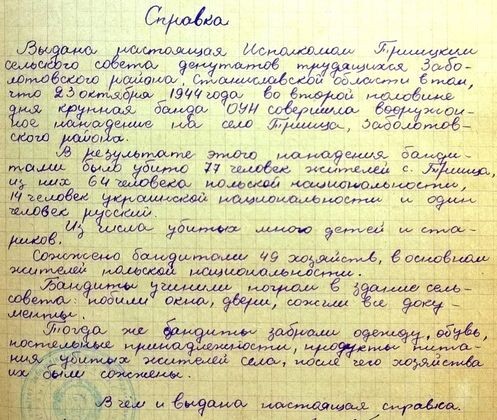 Справка
Выдана настоящая Исполкомом Трицким
сельского совета депутатов трудящихся Забо-
лотовского района, Станиславской области в том,
что 23 октября 1944 года во второй половине
дня крупная банда ОУН совершила вооружон-
ное нападение на село Трийца, Заболотов-
ского района.
В результате этого нападения банди-
тами было убито 77 человек жителей с. Трийца,
из них 64 человека польской национальности,
14 человек украинской национальности и один
человек русский.
Из числа убитых много детей и ста-
риков.
Сожжено бандитами 49 хозяйств, в основном
жителей польской национальности.
Бандиты учинили погром в здание сель-
совета: побили окна, двери, сожгли все доку-
менты.
Тогда же бандиты забрали одежду, обувь,
постельные принадлежности, продукты пита-
ния убитых жителей села, после чего хозяйства
их были сожжены.
В чем и выдана настоящая справка.